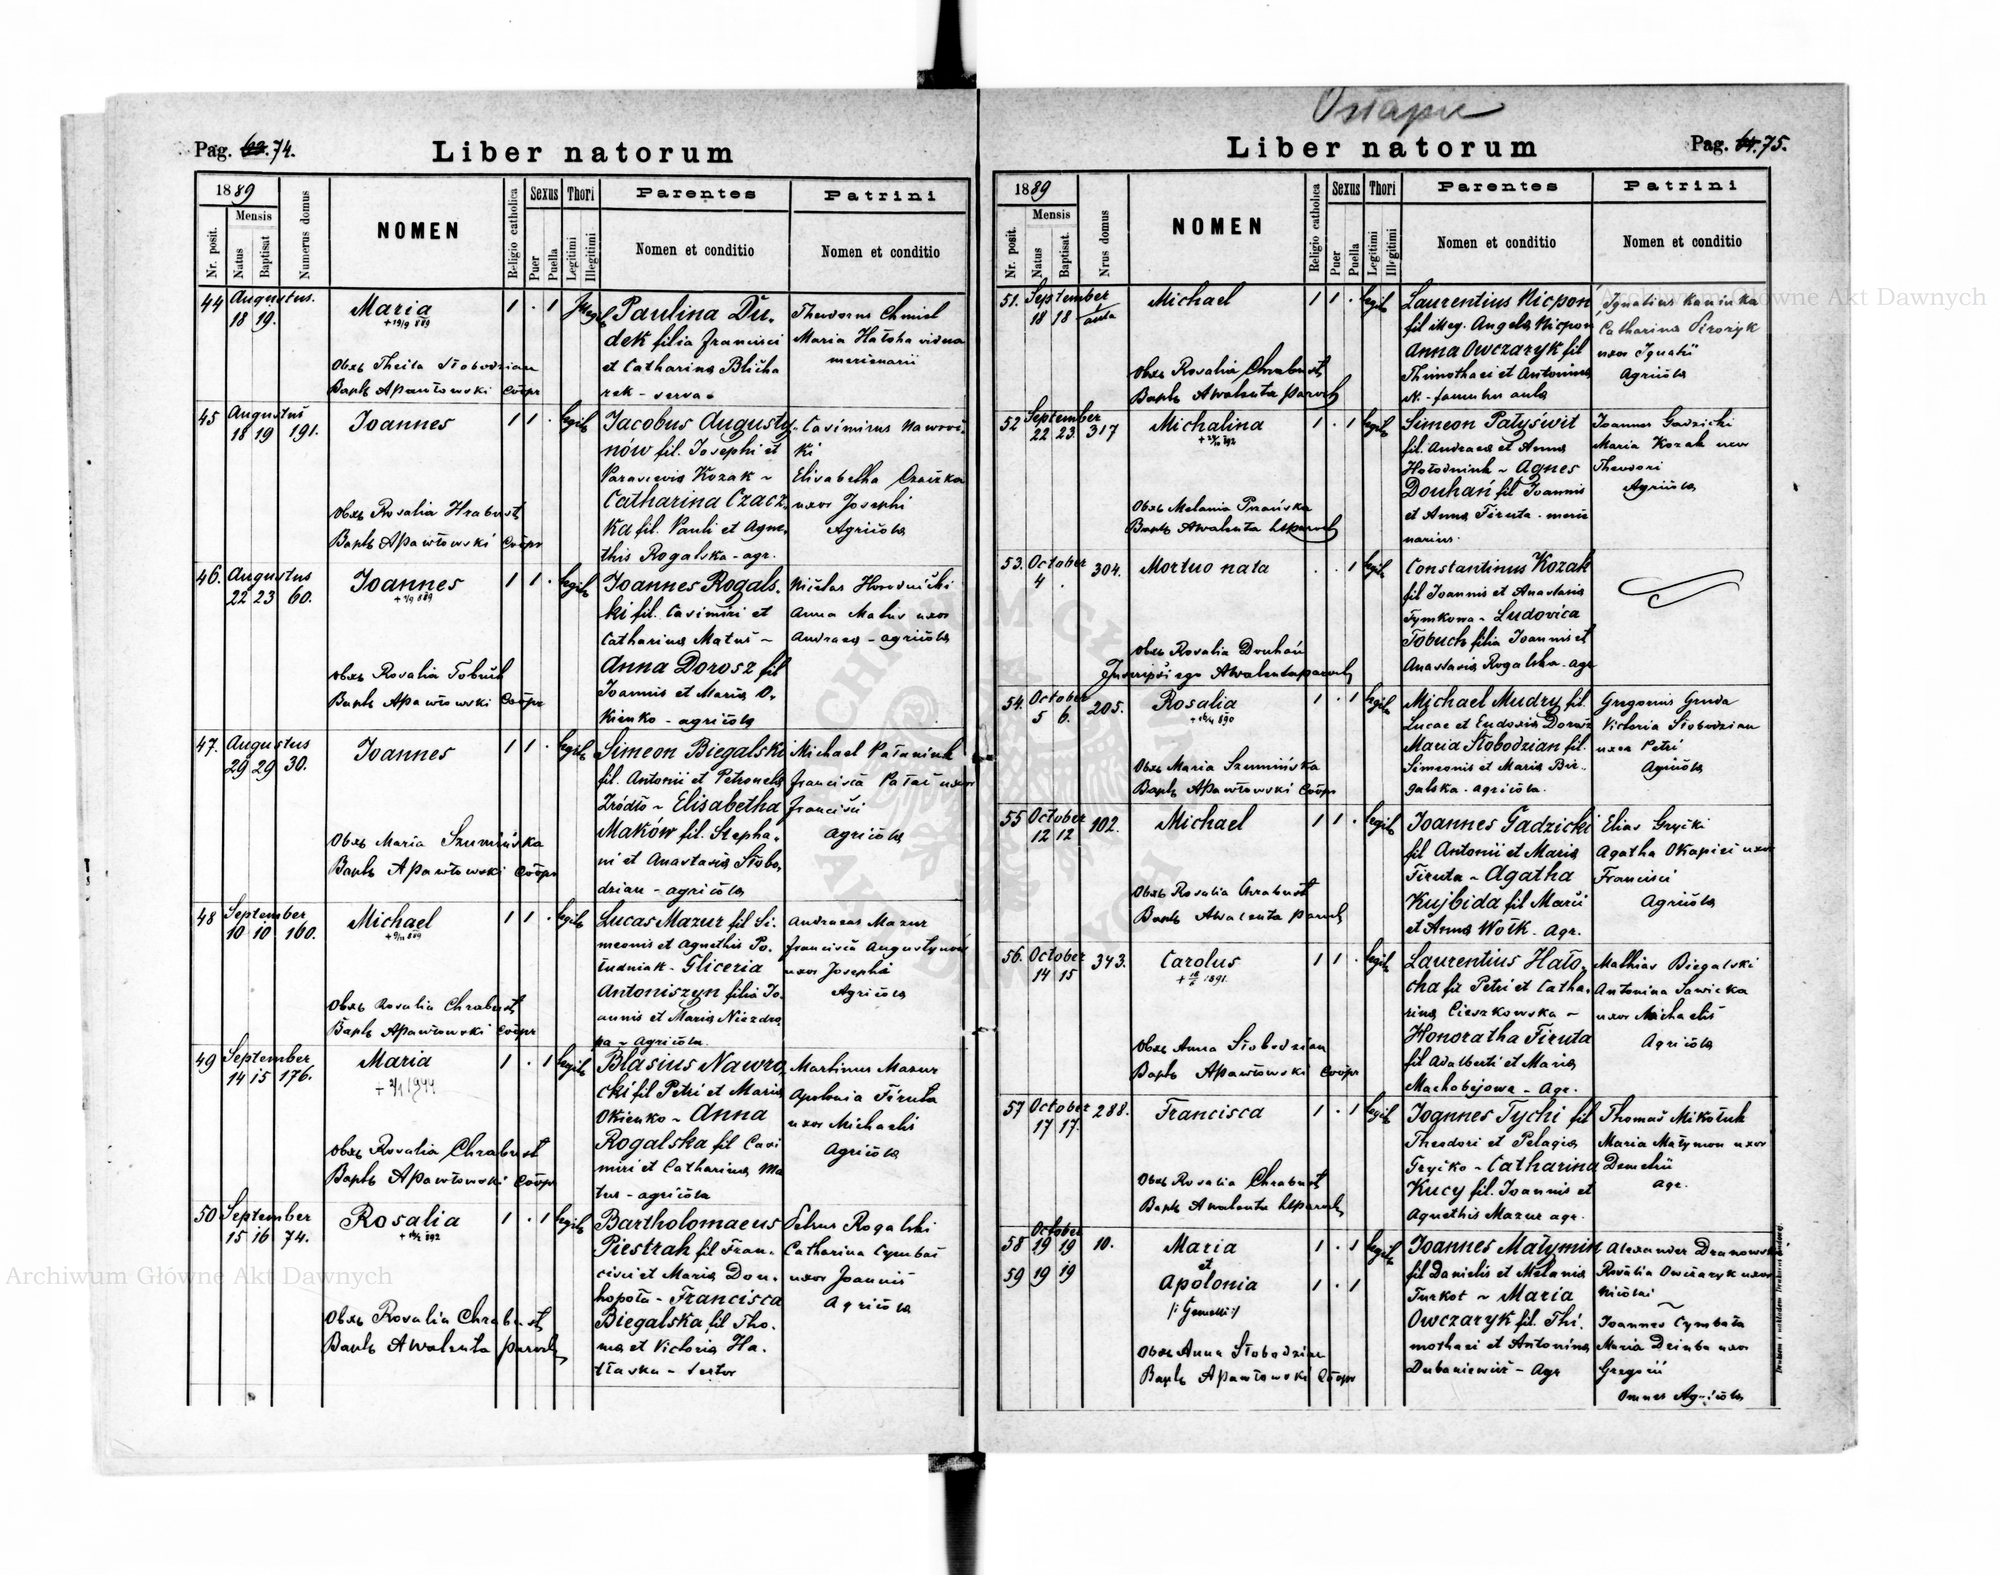 Ostapie
Pag. 74.
Liber natorum
1889
Nr. posit.
Mensis
Natus
Baptisat.
Numerus domus
NOMEN
Religio catholica
Sexus
Puer
Puella
Thori
Legitimi
Illegitimi
Parentes
Nomen et conditio
Patrini
Nomen et conditio
44 Augustus. 18 19.
Maria
Obst. Thecla Słobodzian
Bapt. APawłowski Coöpr
1 . 1 Illegit
Paulina Du-
dek filia Francisci
et Catharina Blicha
rek - serva.
Theodorus Chmiel
Maria Hałoha vidua
mercenarii
45 Augustus 18 19 191.
Joannes
Obst. Rosalia Hrabust
Bapt. APawłowski Coöpr
1 1 . legit
Jacobus Augusty-
nów fil. Josephi et
Parascevia Kozak ~
Catharina Czacz-
ka fil. Pauli et Agne-
this Rogalska - agr.
Casimirus Nawroc-
ki
Elisabetha Czaczka
uxor Josephi
Agricola
46. Augustus 22 23 60.
Joannes
Obst. Rosalia Tobuch
Bapt. APawłowski Coöpr
1 1 . legit
Joannes Rogals-
ki fil. Casimiri et
Catharina Matus ~
Anna Dorosz fil
Joannis et Maria O-
kienko - agricola
Nicolas Horodnicki
Anna Matus uxor
Andreae - agricola
47. Augustus 29 29 30.
Joannes
Obst. Maria Szumińska
Bapt. APawłowski Coöpr
1 1 . legit
Simeon Biegalski
fil. Antonii et Petronela
Źródło ~ Elisabetha
Maków fil. Stepha-
ni et Anastasia Słobo-
dzian - agricola
Michael Pataniuk
Francisca Pałac uxor
Francisci
Agricola
48 September 10 10 160.
Michael
Obst. Rosalia Chrabust
Bapt. APawłowski Coöpr
1 1 . legit
Lucas Mazur fil Si-
meonis et Agnethis Po-
łudniak - Gliceria
Antoniszyn filia Jo-
annis et Maria Niezdro-
pa - Agricola.
Andreas Mazur
Francisca Augustynów
uxor Josephi
Agricola
49 September 14 15 176.
Maria
Obst. Rosalia Chrabust
Bapt. APawłowski Coöpr
1 . 1 legit
Blasius Nawro-
cki fil Petri et Maria
Okienko ~ Anna
Rogalska fil Casi
miri et Catharina Ma
tus - agricola
Martinus Mazur
Apolonia Firuta
uxor Michaelis
Agricola
50 September 15 16 74.
Rosalia
Obst. Rosalia Chrabust
Bapt. AWalenta paroch
1 . 1 legit
Bartholomaeus
Piestrak fil Fran-
cisci et Maria Don-
hopoła - Francisca
Biegalska fil Tho-
ma et Victoria Ha-
- sertor
Petrus Rogalski
Catharina Cymbał
uxor Joannis
Agricola
Liber natorum
Pag. 75.
1889
Nr. posit.
Mensis
Natus
Baptisat.
Nrus domus
NOMEN
Religio catholica
Sexus
Puer
Puella
Thori
Legitimi
Illegitimi
Parentes
Nomen et conditio
Patrini
Nomen et conditio
51. September 18 18 aula
Michael
Obst. Rosalia Chrabust
Bapt. AWalenta paroch
1 1 . legit
Laurentius Nicpon
fil illeg. Angela Nicpon
Anna Owczaryk fil
Thimothaei et Antonina
N. - famulus aula
Ignatius Kaniuka
Catharina Pirozyk
uxor Ignatii
Agricola
52 September 22 23. 317
Michalina
Obst. Melania Przańska
Bapt. AWalenta paroch
1 . 1 legit
Simeon Patyświt
fil. Andreae et Anna
Hołodniuk ~ Agnes
Douhań fil Joannis
et Anna Firuta - merce
narius.
Joannes Gadzicki
Maria Kozak uxor
Theodori
Agricola
53. October 4 . 304.
Mortuo nata
Obst. Rosalia Douhań
AWalenta paroch
. . 1 legit
Constantinus Kozak
fil Joannis et Anastasia
Tymkowa - Ludovica
Tobuch filia Joannis et
Anastasia Rogalska - agr
54. October 5 6. 205.
Rosalia
Obst. Maria Szumińska
Bapt. APawłowski Coöpr
1 . 1 legit
Michael Mudry fil.
Lucae et Eudoxia Dorosz
Maria Słobodzian fil.
Simeonis et Maria Bie-
galska - agricola.
Gregorius Gruda
Victoria Słobodzian
uxor Petri
Agricola
55 October 12 12 102.
Michael
Obst. Rosalia Chrabust
Bapt. AWalenta paroch
1 1 . legit
Joannes Gadzicki
fil Antonii et Maria
Firuta - Agatha
Kujbida fil Marci
et Anna Wołk - Agr.
Elias Gryćki
Agatha Okapiec uxor
Francisci
Agricola
56. October 14 15 343.
Carolus
Obst. Anna Słobodzian
Bapt. APawłowski Coöpr
1 1 . legit
Laurentius Hało-
cha fil Petri et Catha-
rina Cieszkowska ~
Honoratha Firuta
fil Adalberti et Maria
Machobejowa - Agr.
Mathias Biegalski
Antonina Sawicka
uxor Michaelis
Agricola
57 October 17 17. 288.
Francisca
Obst. Rosalia Chrabust
Bapt. AWalenta paroch
1 . 1 legit
Joannes Tychi fil
Theodori et Pelagia
Fryćko - Catharina
Kucy fil. Joannis et
Agnethis Mazur agr.
Thomas Mikołuk
Maria Małymon uxor
Demetrii
agr.
58 October 19 19 10.
Maria
et
59 19 19
Apolonia
/: Gemelli :/
Obst. Anna Słobodzian
Bapt. APawłowski Coöpr
1 . 1 legit
1 . 1
Joannes Małymin
fil Danielis et Melania
Turkot ~ Maria
Owczaryk fil. Thi-
mothaei et Antonina
Dubaniewicz - Agr
Alexander Dranowski
Rosalia Owczaryk uxor
Nicolai
Joannes Cymbała
Maria Dziuba uxor
Gregorii
Omnes Agricola
Archiwum Główne Akt Dawnych
Archiwum Główne Akt Dawnych